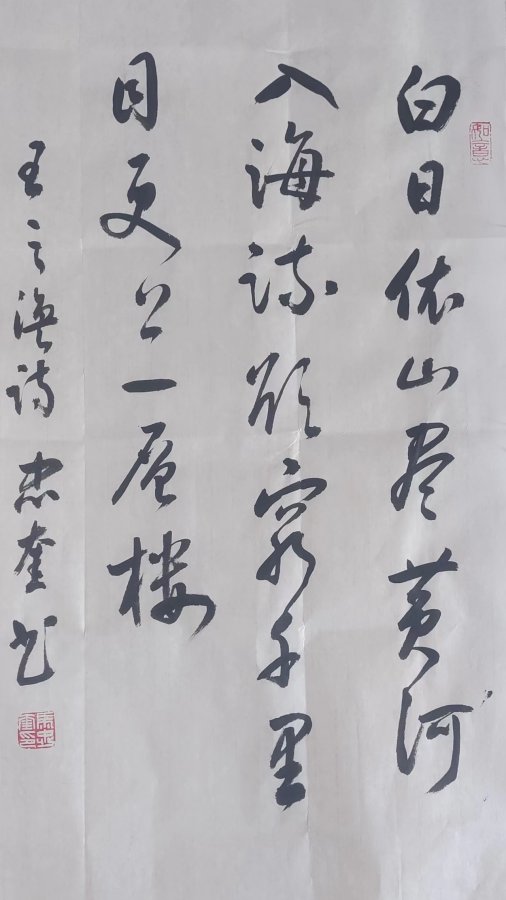 如意
白日依山尽黄河
入海流欲穷千里
目更上一层楼
王之涣诗 忠奎书